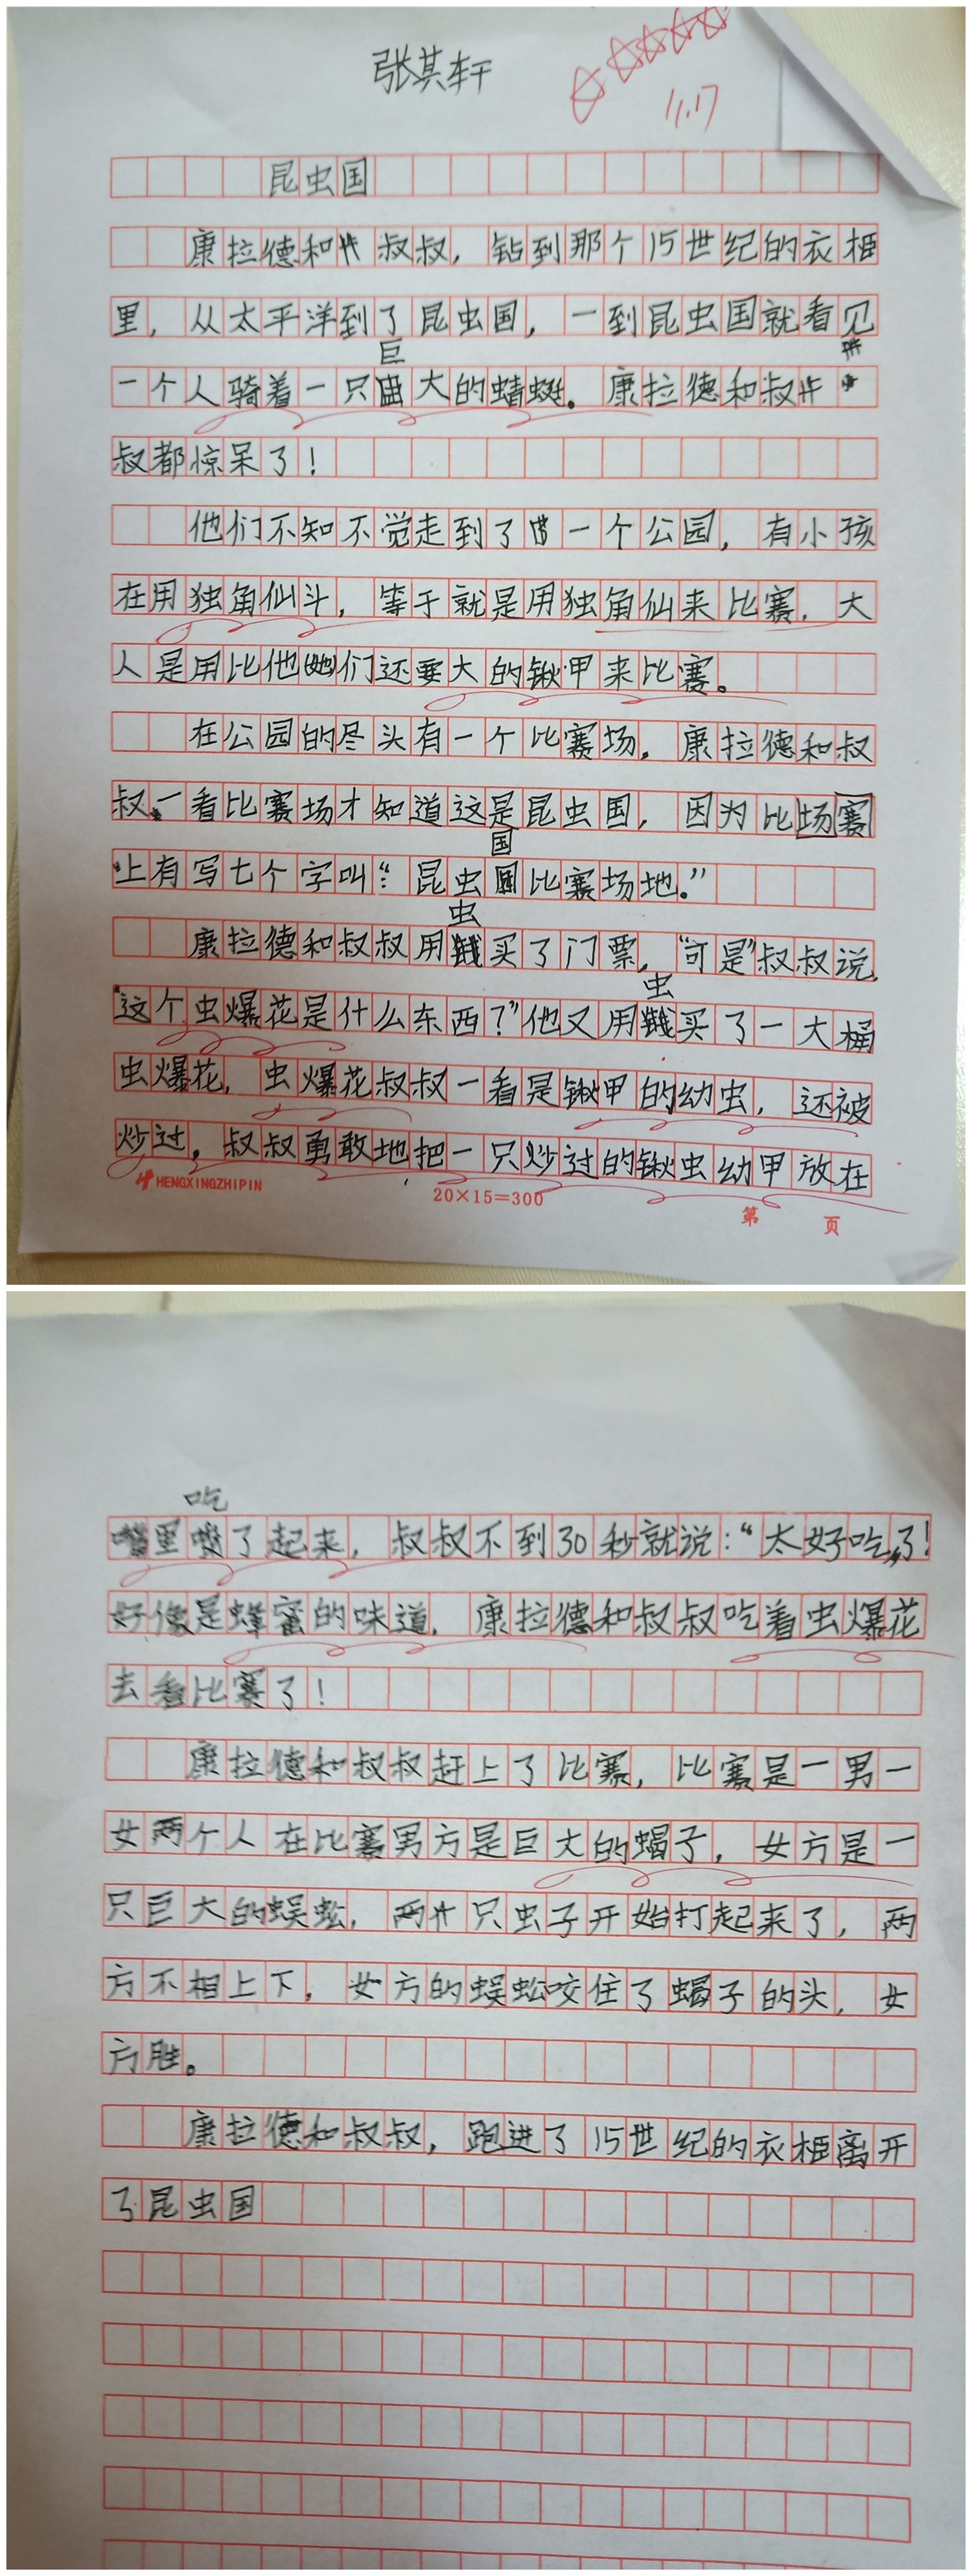 张其轩
11.17
昆虫国
康拉德和叔叔，钻到那个15世纪的衣柜
里，从太平洋到了昆虫国，一到昆虫国就看见
一个人骑着一只巨大的蜻蜓。康拉德和叔
叔都惊呆了！
他们不知不觉走到了一个公园，有小孩
在用独角仙斗，等于就是用独角仙来比赛，大
人是用比他(她)们还要大的锹甲来比赛。
在公园的尽头有一个比赛场，康拉德和叔
叔一看比赛场才知道这是昆虫国，因为比场赛
上有写七个字叫：“昆虫国比赛场地。”
康拉德和叔叔用虫买了门票，“可是”叔叔说，
“这个虫爆花是什么东西？”他又用虫买了一大桶
虫爆花，虫爆花叔叔一看是锹甲的幼虫，还被
炒过，叔叔勇敢地把一只炒过的锹虫幼甲放在
HENGXINGZHIPIN
20×15=300
第 页
嘴里吃了起来，叔叔不到30秒就说：“太好吃了！
好像是蜂蜜的味道，康拉德和叔叔吃着虫爆花
去看比赛了！
康拉德和叔叔赶上了比赛，比赛是一男一
女两个人在比赛男方是巨大的蝎子，女方是一
只巨大的蜈蚣，两只虫子开始打起来了，两
方不相上下，女方的蜈蚣咬住了蝎子的头，女
方胜。
康拉德和叔叔，跑进了15世纪的衣柜离开
了昆虫国